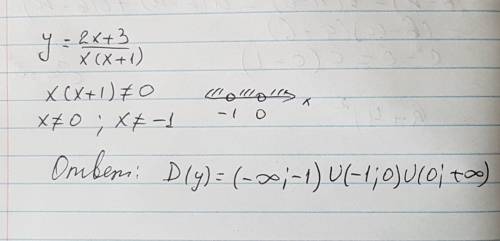 y = (2x+3)/(x(x+1))
x(x+1) ≠ 0
x ≠ 0 ; x ≠ -1
-1 0 x
Ответ: D(y) = (-∞; -1) U (-1; 0) U (0; +∞)